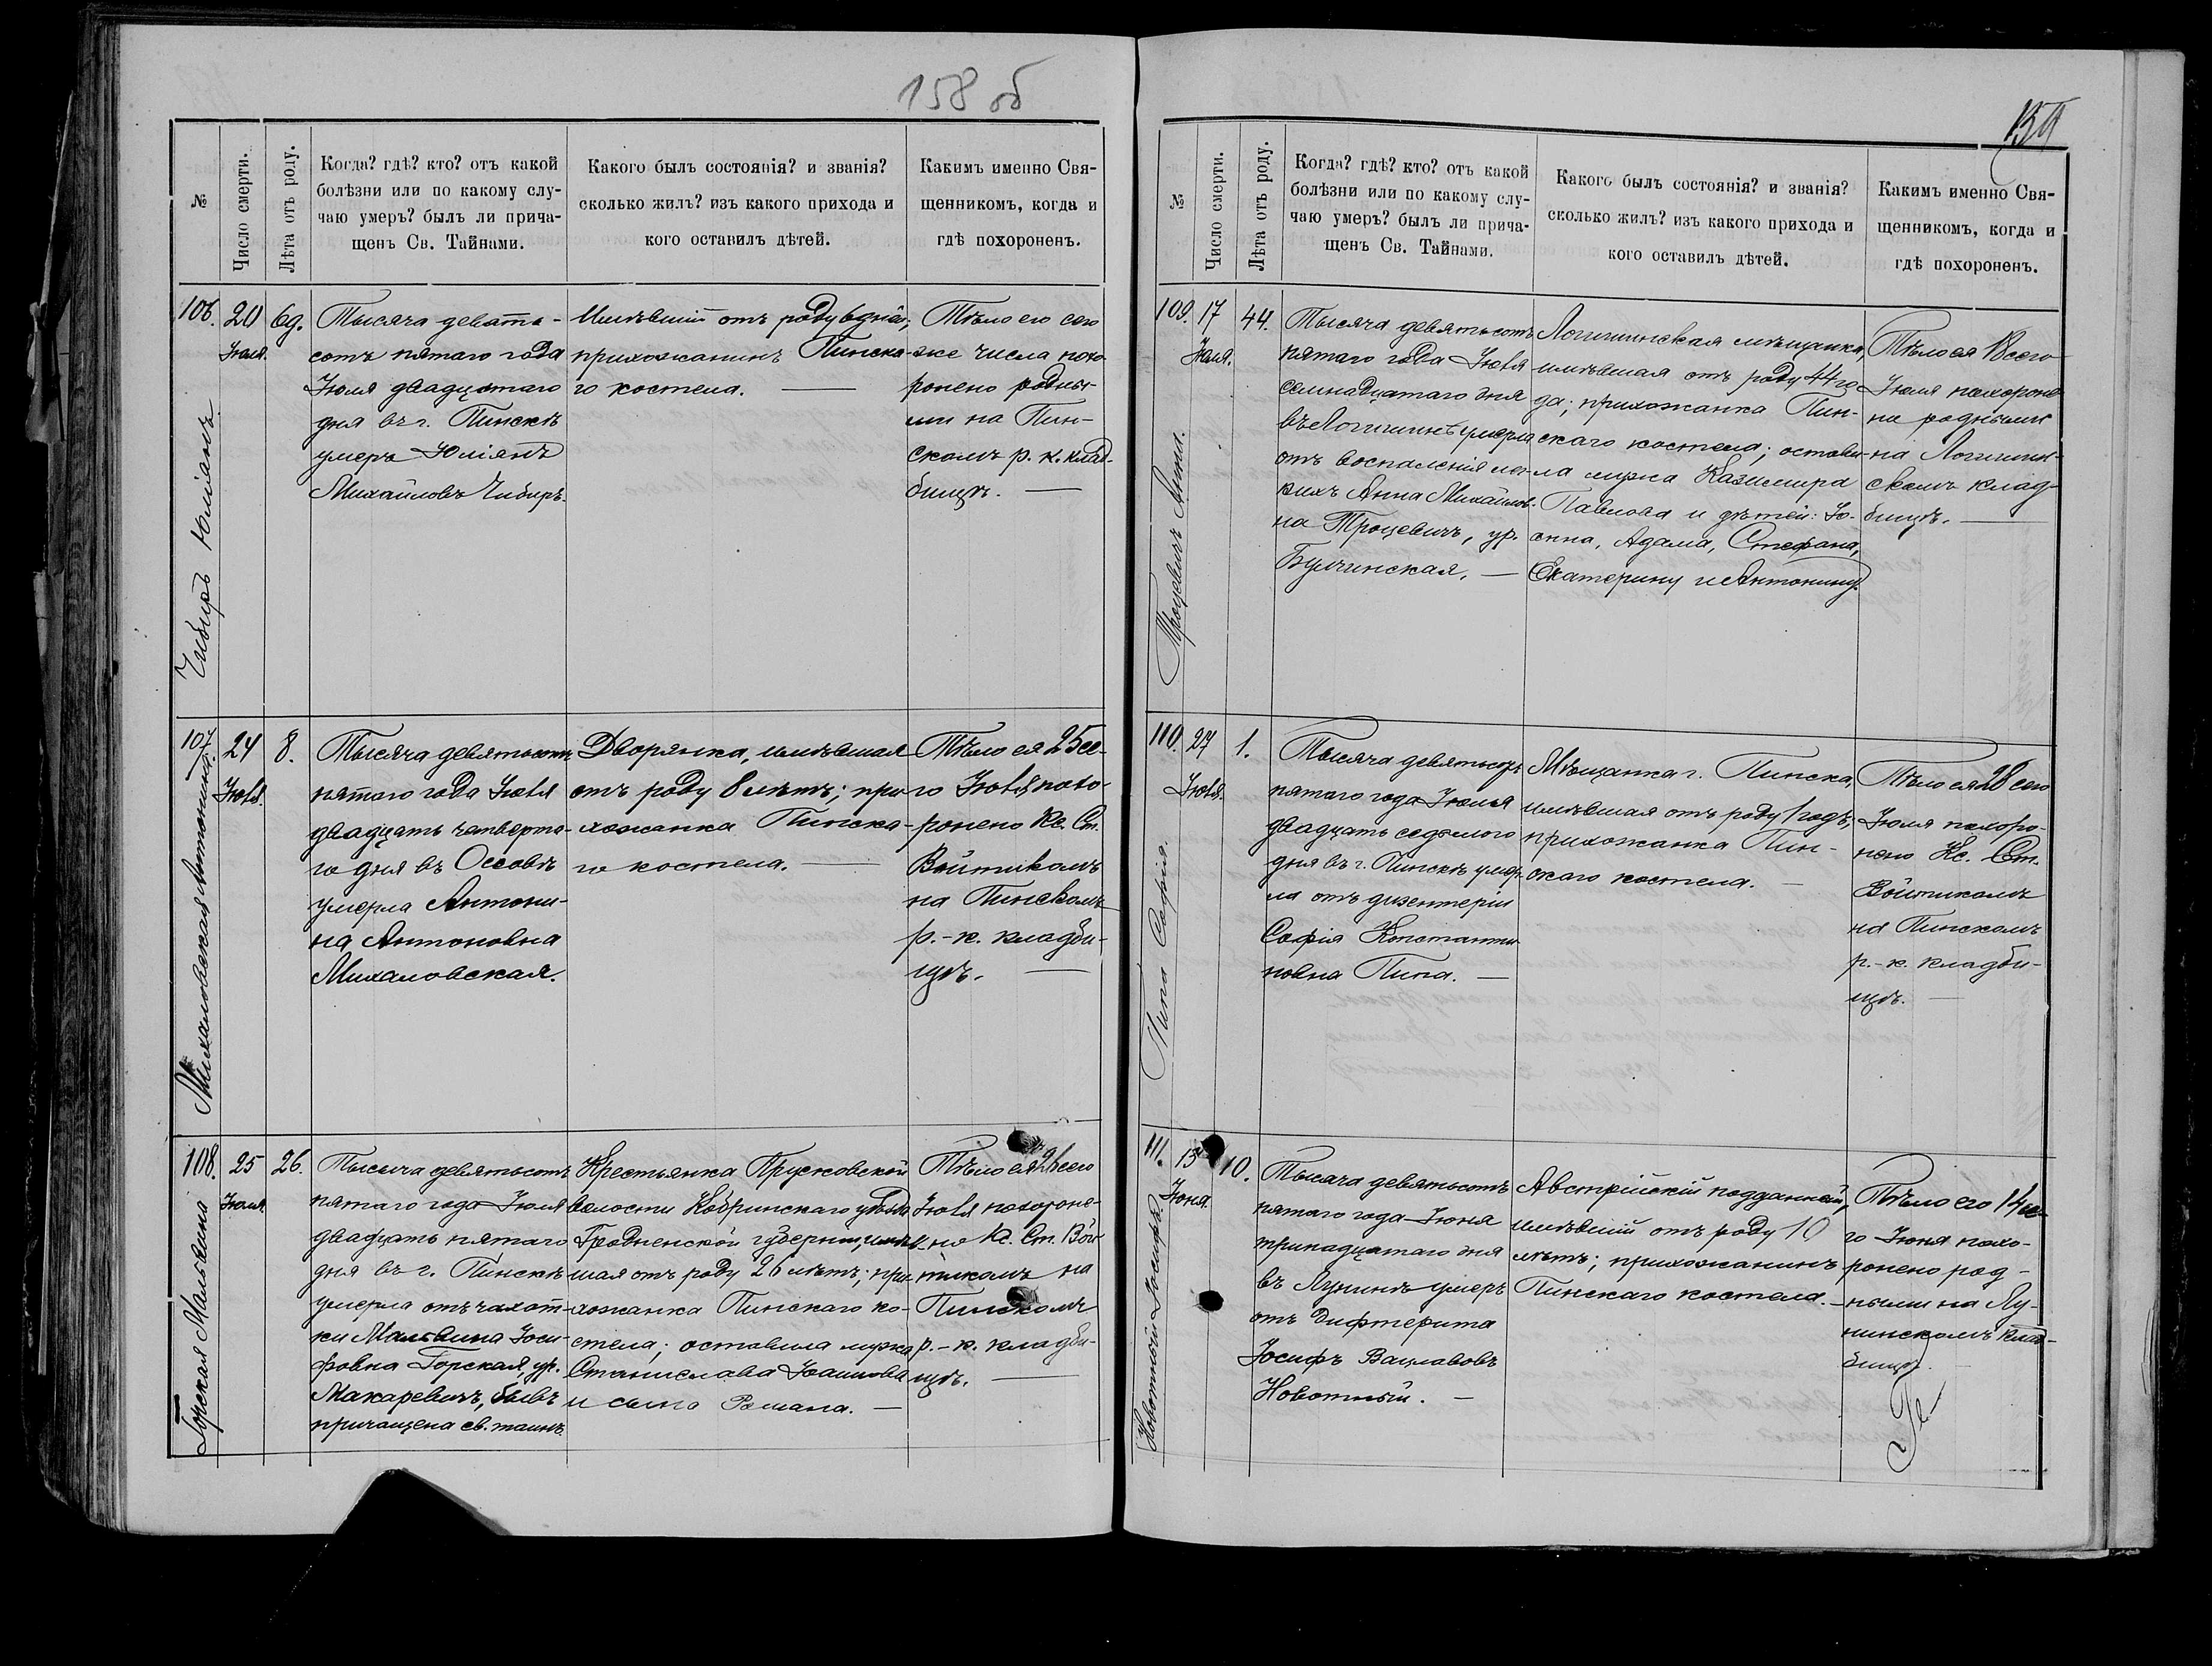 158 об
№
Число смерти.
Лѣта отъ роду.
Когда? гдѣ? кто? отъ какой
болѣзни или по какому слу-
чаю умеръ? былъ ли прича-
щенъ Св. Тайнами.
Какого былъ состоянія? и званія?
сколько жилъ? изъ какого прихода и
кого оставилъ дѣтей.
Какимъ именно Свя-
щенникомъ, когда и
гдѣ похороненъ.
106.
Чибиръ Юліянъ
20
Іюля.
6д.
Тысяча девять-
сотъ пятаго года
Іюля двадцатаго
дня въ г. Пинскѣ
умеръ Юліянъ
Михайловъ Чибиръ.
Имѣвшій отъ роду 6 дней;
прихожанинъ Пинска-
го костела. —
Тѣло его сего
же числа похо-
ронено родны-
ми на Пин-
скомъ р. к. клад-
бищѣ. —
107.
Михаловская Антонина.
24
Іюля.
8.
Тысяча девятьсотъ
пятаго года Іюля
двадцать четверта-
го дня въ Оссовѣ
умерла Антони-
на Антоновна
Михаловская.
Дворянка, имѣвшая
отъ роду 8 лѣтъ; при-
хожанка Пинска-
го костела. —
Тѣло ея 25 се-
го Іюля похо-
ронено Кс. Ст.
Войтикомъ
на Пинскомъ
р.-к. кладби-
щѣ. —
108.
Горская Мальвина
25
Іюля
26.
Тысяча девятьсотъ
пятаго года Іюля
двадцать пятаго
дня въ г. Пинскѣ
умерла отъ чахот-
ки Мальвина Іоси-
фовна Горская, ур.
Макаревичъ, бывъ
причащена св. таинъ.
Крестьянка Прусковской
волости Кобринскаго уѣзда
Гродненской губерніи, имѣв-
шая отъ роду 26 лѣтъ; при-
хожанка Пинскаго ко-
стела; оставила мужа
Станислава Іоаннова
и сына Романа. —
Тѣло ея 26 сего
Іюля похороне-
но Кс. Ст. Вой-
тикомъ на
Пинскомъ
р.-к. кладби-
щѣ. —
159
№
Число смерти.
Лѣта отъ роду.
Когда? гдѣ? кто? отъ какой
болѣзни или по какому слу-
чаю умеръ? былъ ли прича-
щенъ Св. Тайнами.
Какого былъ состоянія? и званія?
сколько жилъ? изъ какого прихода и
кого оставилъ дѣтей.
Какимъ именно Свя-
щенникомъ, когда и
гдѣ похороненъ.
109.
Троцевичъ Анна.
17
Іюля.
44.
Тысяча девятьсотъ
пятаго года Іюля
семнадцатаго дня
въ Логишинѣ умерла
отъ воспаленія лег-
кихъ Анна Михайлов-
на Троцевичъ, ур.
Булчинская. —
Логишинская мѣщанка,
имѣвшая отъ роду 44 го-
да; прихожанка Пин-
скаго костела; остави-
ла мужа Казимира
Павлова и дѣтей: Іо-
анна, Адама, Стефана,
Екатерину и Антонину.
Тѣло ея 18 сего
Іюля похороне-
но родными
на Логишин-
скомъ клад-
бищѣ. —
110.
Пипа Софія.
27
Іюля.
1.
Тысяча девятьсотъ
пятаго года Іюля
двадцать седьмого
дня въ г. Пинскѣ умер-
ла отъ дизентеріи
Софія Константи-
новна Пипа. —
Мѣщанка г. Пинска,
имѣвшая отъ роду 1 годъ;
прихожанка Пин-
скаго костела. —
Тѣло ея 28 сего
Іюля похоро-
нено Кс. Ст.
Войтикомъ
на Пинскомъ
р.-к. кладби-
щѣ. —
111.
Новотный Іосифъ.
13
Іюня.
10.
Тысяча девятьсотъ
пятаго года Іюня
тринадцатаго дня
въ Лунинѣ умеръ
отъ дифтерита
Іосифъ Вацлавовъ
Новотный. —
Австрійскій подданный,
имѣвшій отъ роду 10
лѣтъ; прихожанинъ
Пинскаго костела. —
Тѣло его 14 се-
го Іюня похо-
ронено род-
ными на Лу-
нинскомъ клад-
бищѣ.